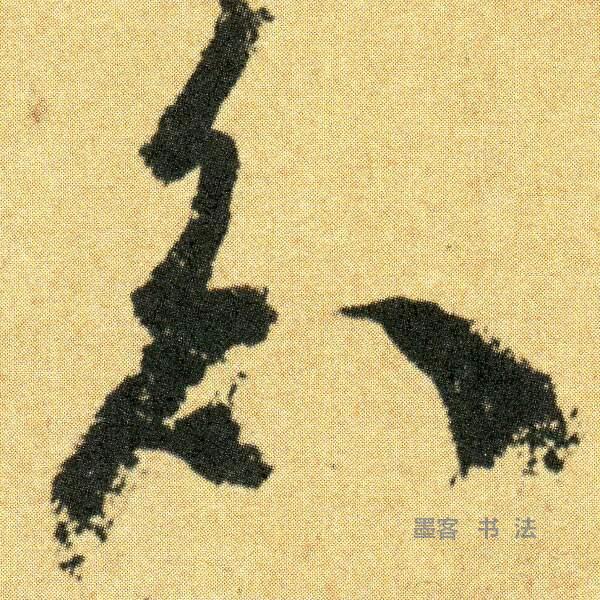 知
墨客 书 法